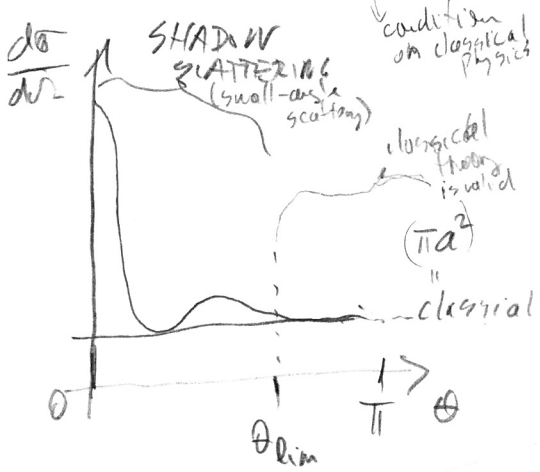 condition
on classical
physics
dσ
dΩ
SHADOW
SCATTERING
(small-angle
scattering)
classical
theory
is valid
(πa²)
"
classical
0
θ lim
π
θ